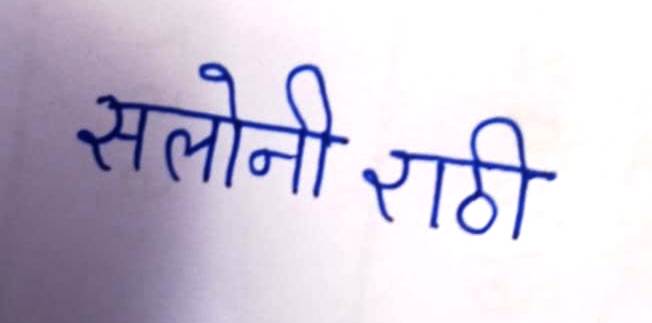 सलोनी राठी